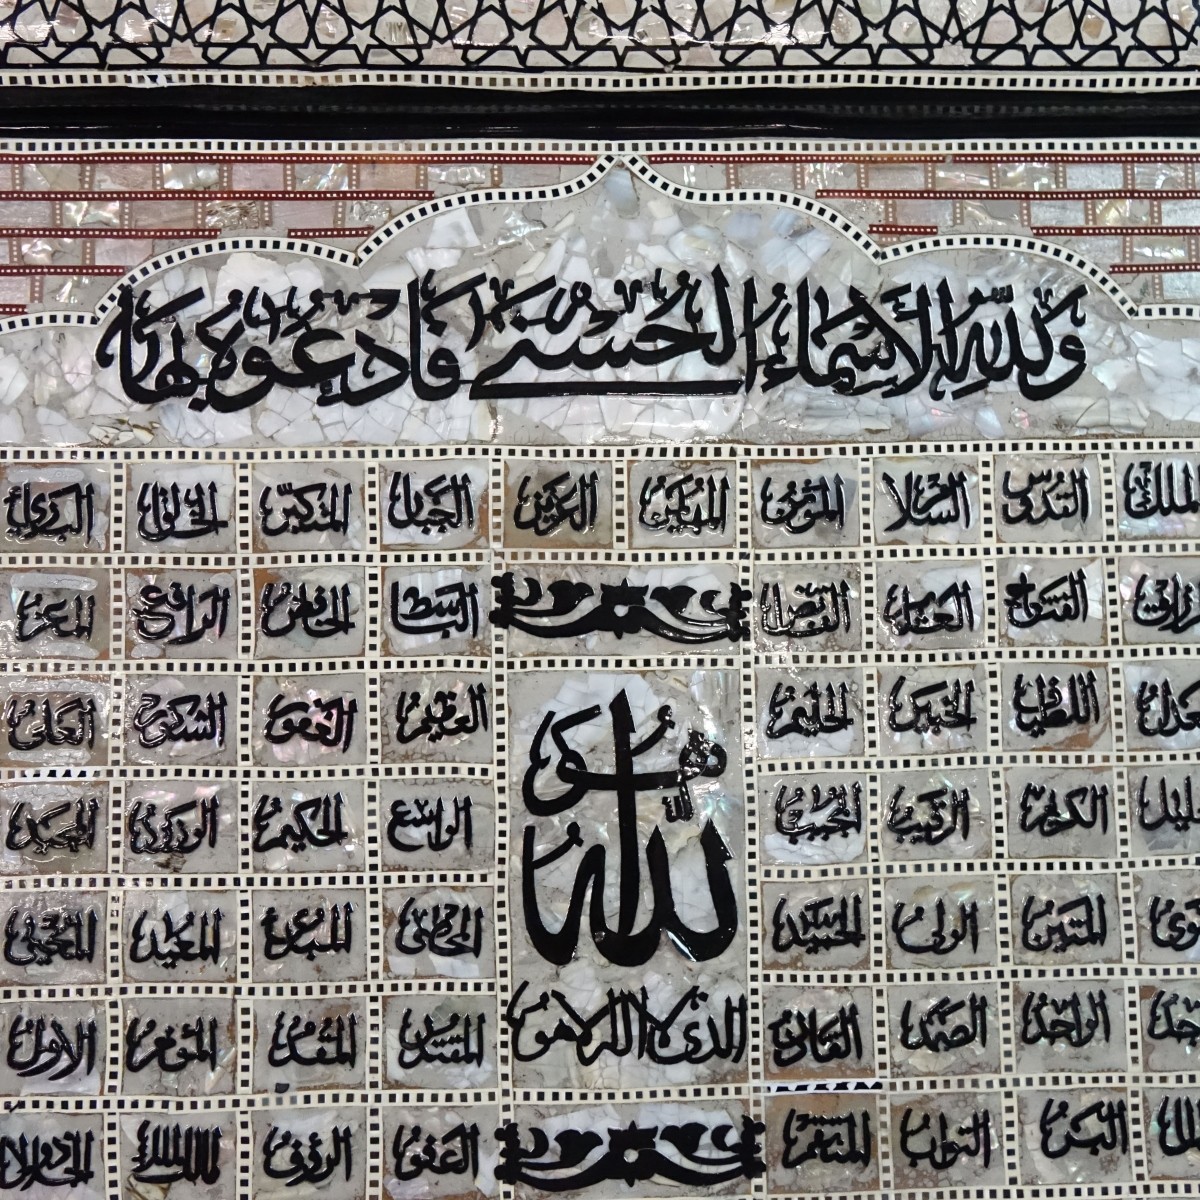 ولله الاسماء الحسنى فادعوه بها
الملك القدوس السلام المؤمن المهيمن العزيز الجبار المتكبر الخالق البارئ
الفتاح العليم القابض الباسط الخافض الرافع المعز
اللطيف الخبير الحليم العظيم الغفور الشكور العلي
الكريم الرقيب المجيب الواسع الحكيم الودود المجيد
هو الله
المتين الولي الحميد المحصي المبدئ المعيد المحيي
الواحد الصمد القادر الذي لا اله الا هو المقتدر المقدم المؤخر الاول
البر التواب المنتقم العفو الرؤف مالك الملك